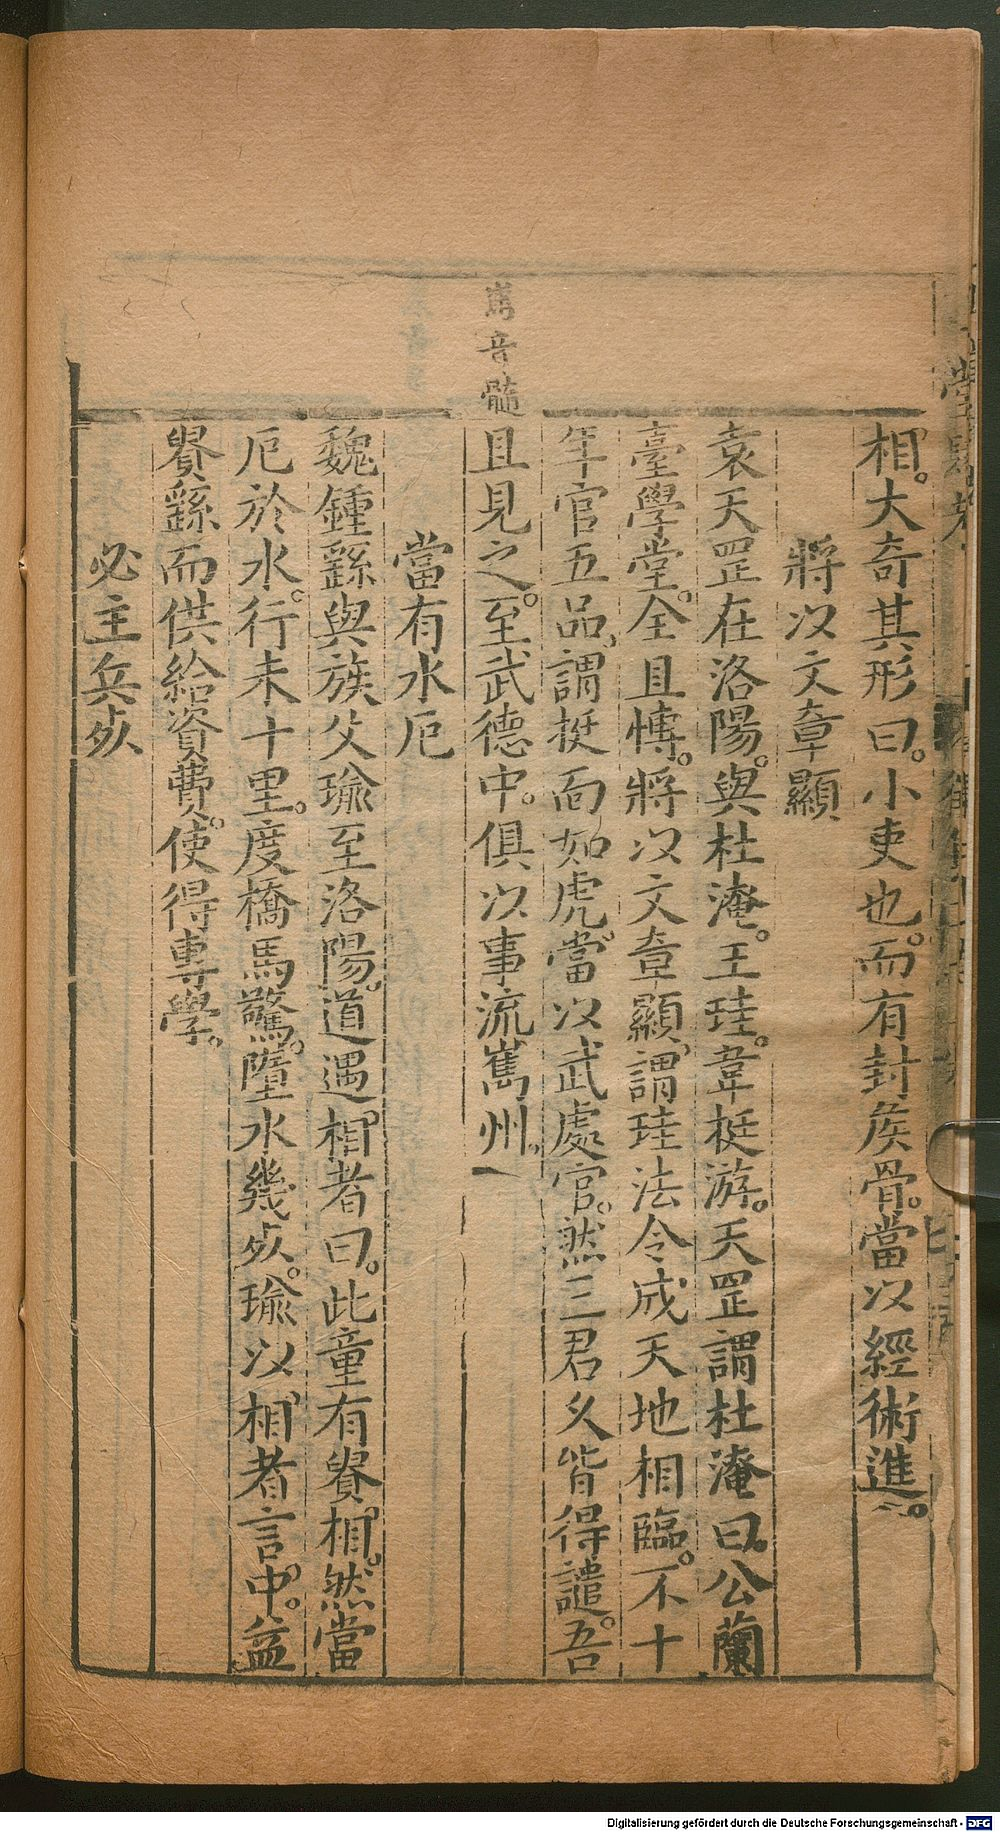 相大奇其形曰。小吏也。而有封侯骨。當以經術進。
將以文章顯
袁天罡在洛陽。與杜淹。王珪。韋挺游。天罡謂杜淹曰。公蘭
臺學堂。全且愽。將以文章顯。謂珪法令成天地相臨。不十
年官五品。謂挺面如虎。當以武處官。然三君乆皆得譴。吾
嶲音髓
且見之。至武德中。俱以事流嶲州。
當有水厄
魏鍾繇與族父瑜至洛陽。道遇相者曰。此童有貴相。然當
厄於水。行未十里。度橋馬驚。墮水幾𣦸。瑜以相者言中。益
貴繇而供給資費。使得專學。
必主兵𣦸
Digitalisierung gefördert durch die Deutsche Forschungsgemeinschaft - DFG